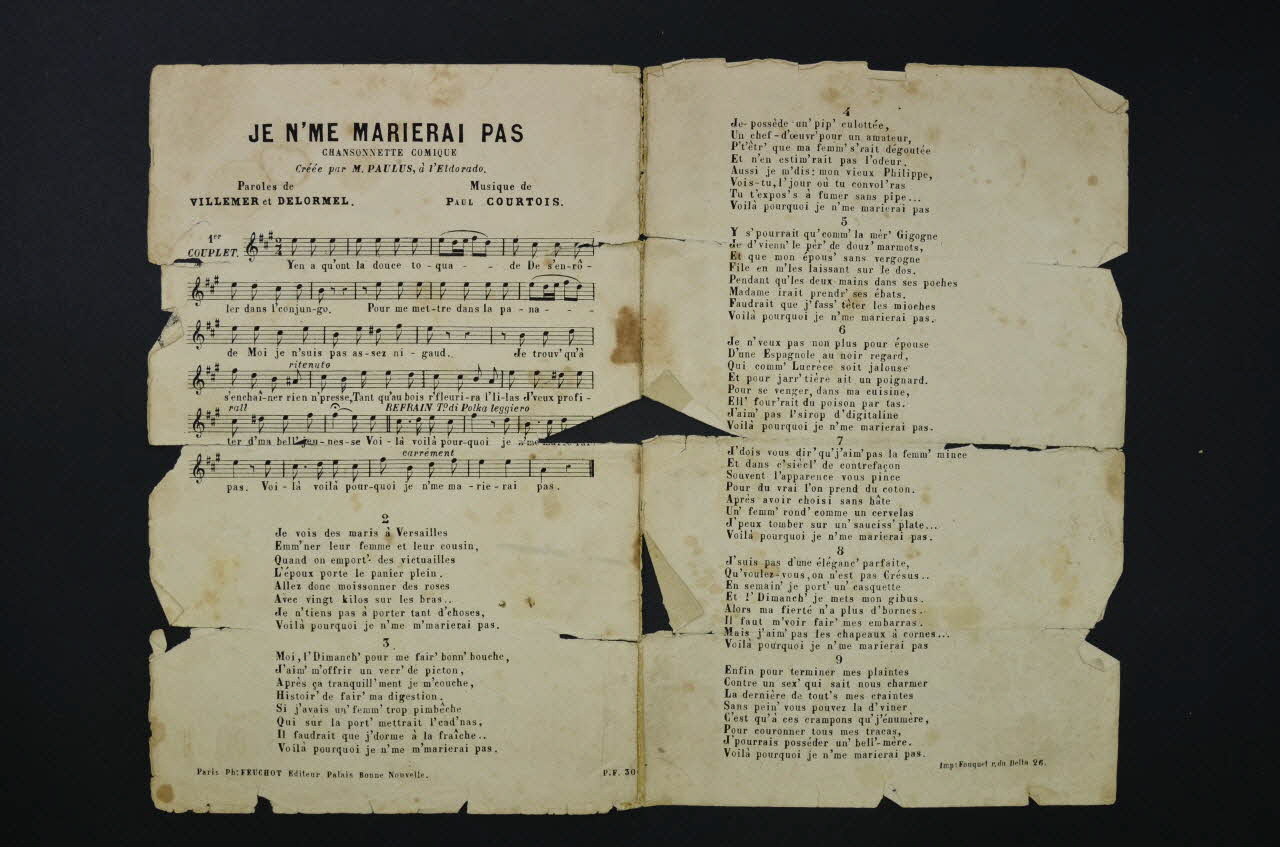 JE N'ME MARIERAI PAS
CHANSONNETTE COMIQUE
Créée par M. PAULUS, à l'Eldorado.
Paroles de
VILLEMER et DELORMEL.
Musique de
PAUL COURTOIS.
1er
COUPLET.
Yen a qu'ont la douce to - qua - - - de De s'en-rô -
ler dans l'conjun-go. Pour me met-tre dans la pa - na - - -
de Moi je n'suis pas as-sez ni - gaud. Je trouv' qu'à
ritenuto
s'enchaî-ner rien n'presse, Tant qu'au bois r'fleuri-ra l'li-las J'veux profi-
rall
REFRAIN To di Polka leggiero
ter d'ma bell' jeu-nes-se Voi - là voilà pour-quoi je n'me marie-rai
carrément
pas. Voi - là voilà pour-quoi je n'me ma - rie - rai pas.
2
Je vois des maris à Versailles
Emm'ner leur femme et leur cousin,
Quand on emport' des victuailles
L'époux porte le panier plein.
Allez donc moissonner des roses
Avec vingt kilos sur les bras..
Je n'tiens pas à porter tant d'choses,
Voilà pourquoi je n'me m'marierai pas.
3.
Moi, l'Dimanch' pour me fair' bonn' bouche,
J'aim' m'offrir un verr' de picton,
Après ça tranquill'ment je m'couche,
Histoir' de fair' ma digestion.
Si j'avais un' femm' trop pimbêche
Qui sur la port' mettrait l'cad'nas,
Il faudrait que j'dorme à la fraîche..
Voilà pourquoi je n'me m'marierai pas.
Paris Ph: FEUCHOT Editeur Palais Bonne Nouvelle.
P.F. 30
4
Je possède un' pip' culottée,
Un chef-d'œuvr' pour un amateur,
P't'êtr' que ma femm' s'rait dégoutée
Et n'en estim'rait pas l'odeur.
Aussi je m'dis: mon vieux Philippe,
Vois-tu, l'jour où tu convol'ras
Tu t'expos's à fumer sans pipe...
Voilà pourquoi je n'me marierai pas
5
Y s'pourrait qu'comm' la mèr' Gigogne
Je d'vienn' le pèr' de douz' marmots,
Et que mon épous' sans vergogne
File en m'les laissant sur le dos.
Pendant qu'les deux mains dans ses poches
Madame irait prendr' ses ébats.
Faudrait que j'fass' têter les mioches
Voilà pourquoi je n'me marierai pas.
6
Je n'veux pas non plus pour épouse
D'une Espagnole au noir regard,
Qui comm' Lucrèce soit jalouse
Et pour jarr'tière ait un poignard.
Pour se venger, dans ma cuisine,
Ell' four'rait du poison par tas.
J'aim' pas l'sirop d'digitaline
Voilà pourquoi je n'me marierai pas.
7
J'dois vous dir' qu'j'aim' pas la femm' mince
Et dans c'siècl' de contrefaçon
Souvent l'apparence vous pince
Pour du vrai l'on prend du coton.
Après avoir choisi sans hâte
Un' femm' rond' comme un cervelas
J'peux tomber sur un' sauciss' plate...
Voilà pourquoi je n'me marierai pas.
8
J'suis pas d'une éléganc' parfaite,
Qu'voulez-vous, on n'est pas Crésus..
En semain' je port' un' casquette
Et l' Dimanch' je mets mon gibus.
Alors ma fierté n'a plus d'bornes.
Il faut m'voir fair' mes embarras.
Mais j'aim' pas les chapeaux à cornes...
Voilà pourquoi je n'me marierai pas
9
Enfin pour terminer mes plaintes
Contre un sex' qui sait nous charmer
La dernière de tout's mes craintes
Sans pein' vous pouvez la d'viner
C'est qu'à ces crampons qu'j'énumère,
Pour couronner tous mes tracas,
J'pourrais posséder un' bell'-mère.
Voilà pourquoi je n'me marierai pas.
Imp: Fouquet r. du Delta 26.